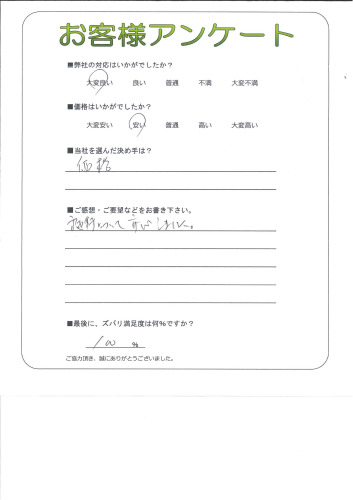 お客様アンケート
■弊社の対応はいかがでしたか？
大変良い 良い 普通 不満 大変不満
■価格はいかがでしたか？
大変安い 安い 普通 高い 大変高い
■当社を選んだ決め手は？
価格
■ご感想・ご要望などをお書き下さい。
しました。
■最後に、ズバリ満足度は何%ですか？
100 %
ご協力頂き、誠にありがとうございました。